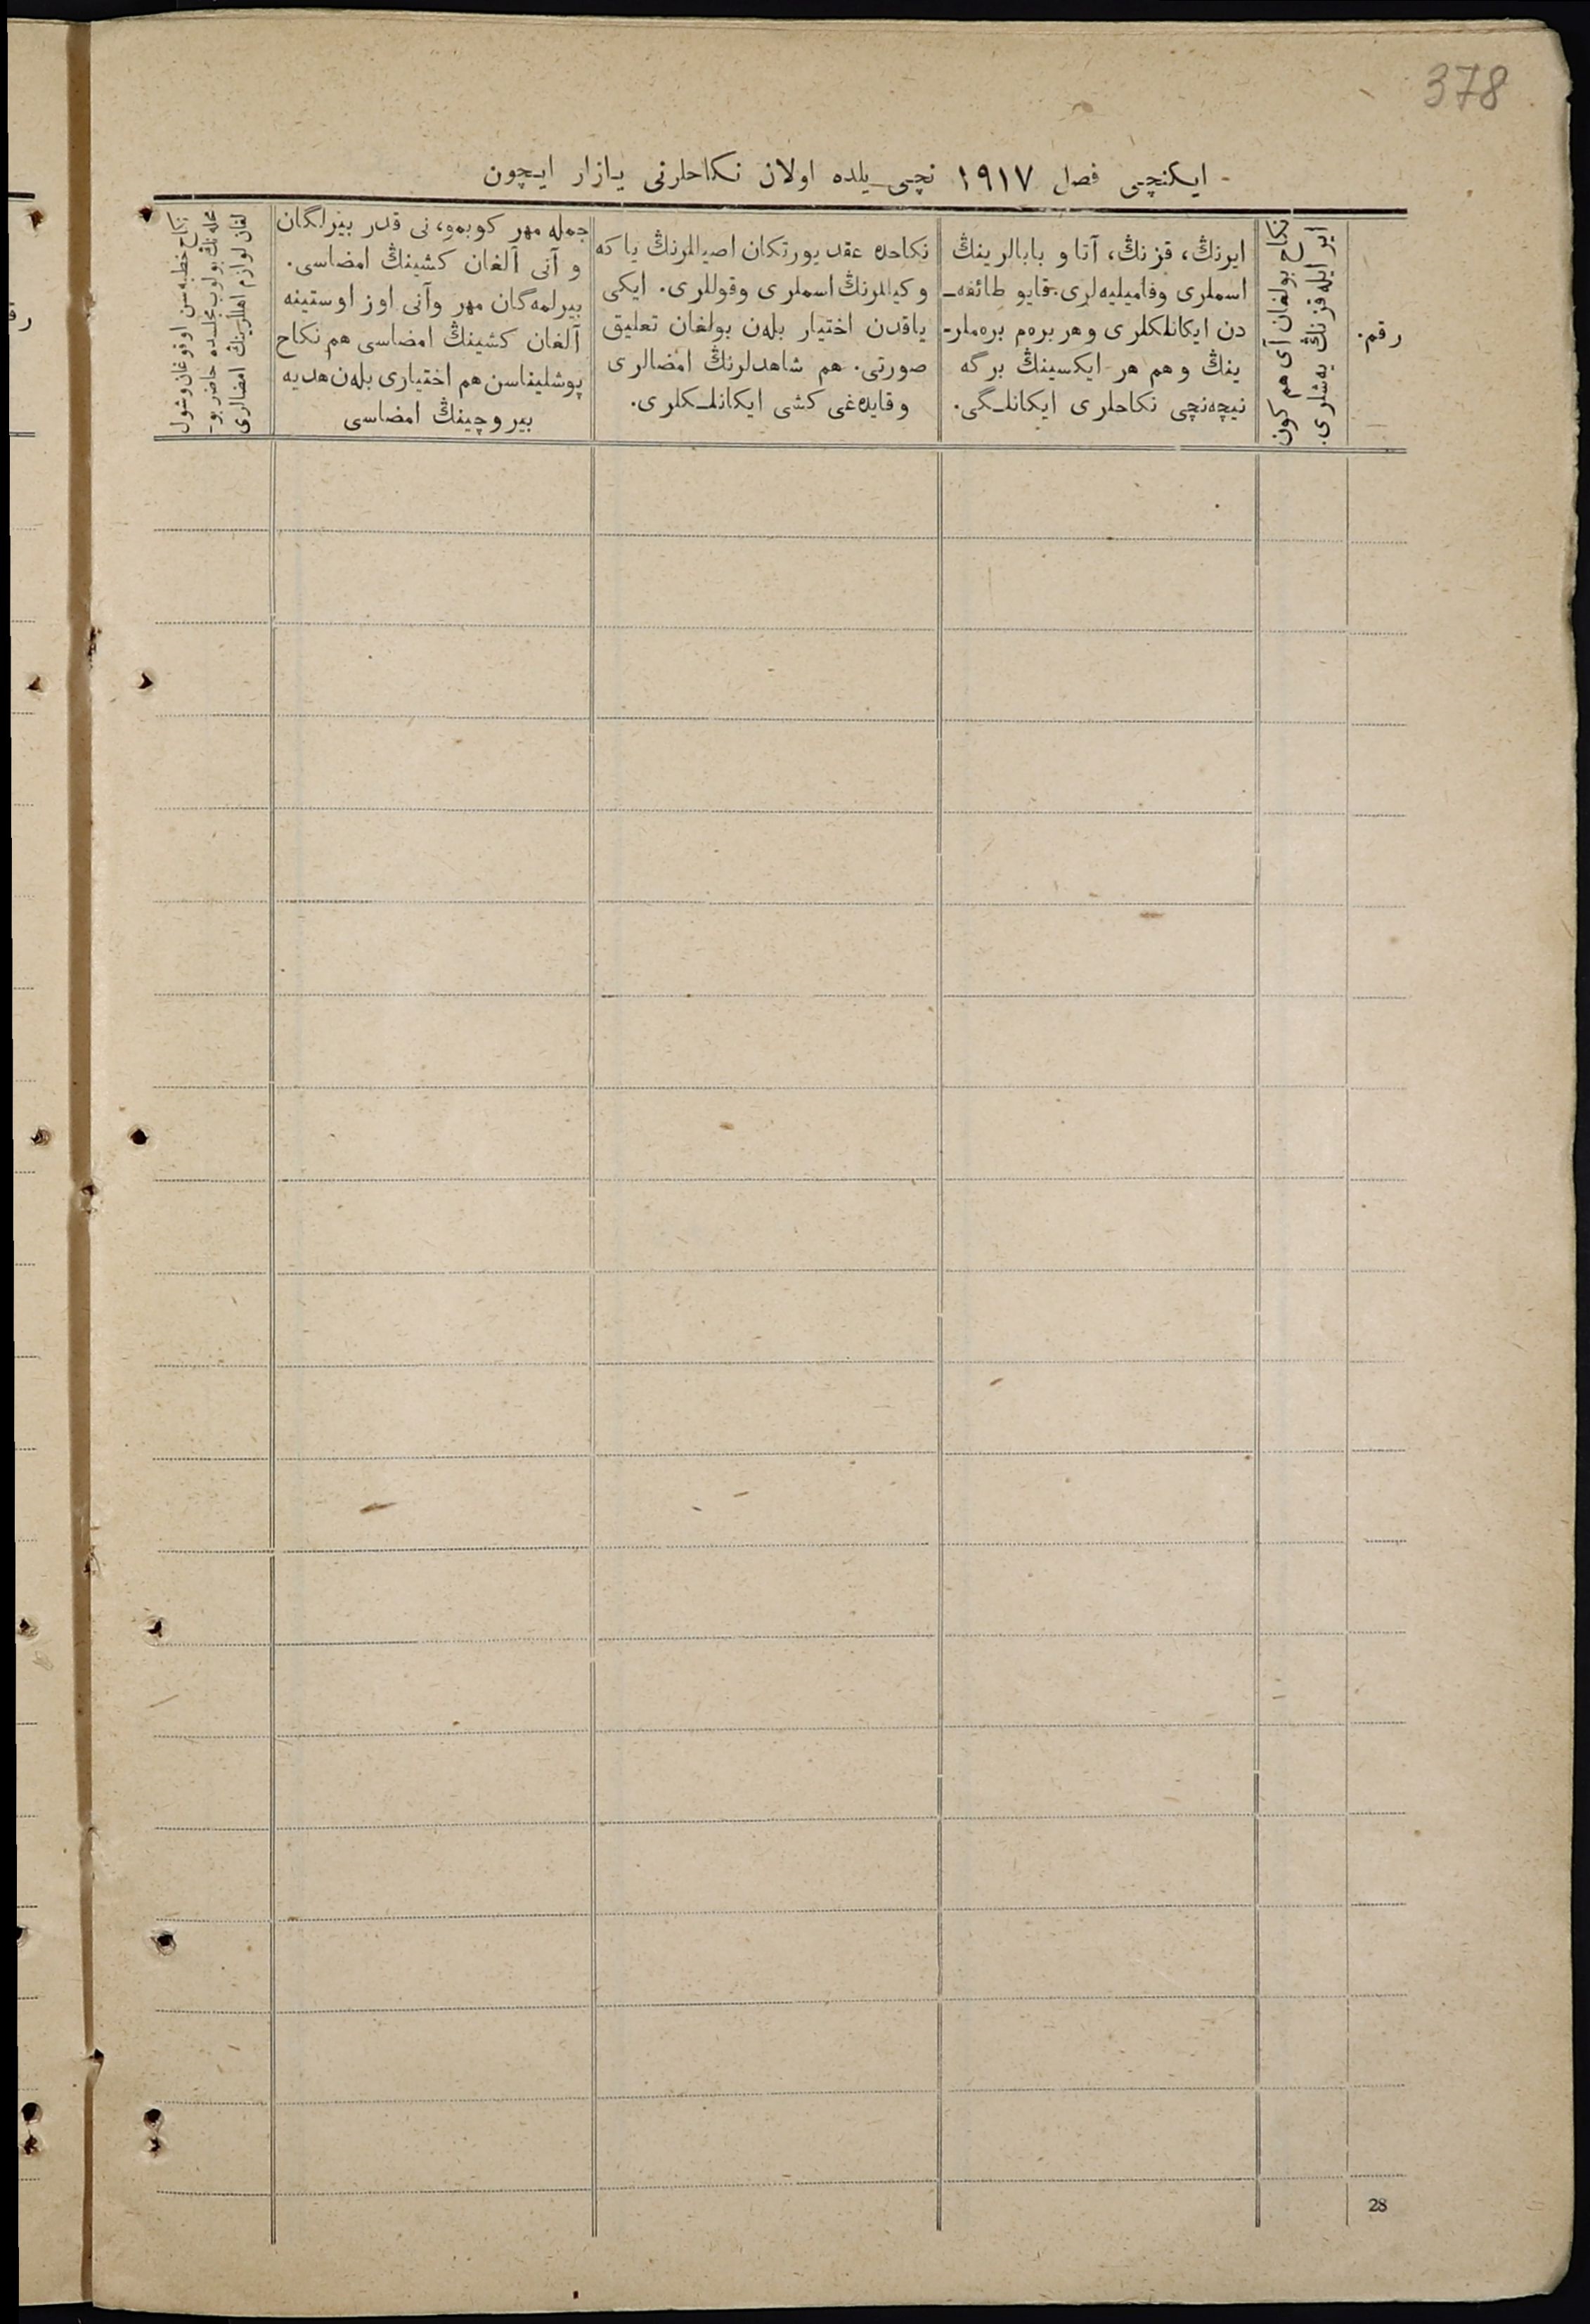 378
ایکنچی فصل ١٩١٧ نچی یلده اولان نکاحلرنی یازار ایچون
رقم.
نکاح بولغان آی هم کون
ایر ایله قزنڭ یه‌شلری.
ایرنڭ، قزنڭ، آتا و بابالرینڭ
اسملری وفامیلیه‌لری. قایو طائفه‌ـ
دن ایکانلکلری وهر بره‌م بره‌ملرـ
ینڭ وهم هر ایکسینڭ برگه
نیچه‌نچی نکاحلری ایکانلـگی.
نکاحده عقد یورتکان اصیللرنڭ یا که
وکیللرنڭ اسملری وقوللری. ایکی
یاقدن اختیار بله‌ن بولغان تعلیق
صورتی. هم شاهدلرنڭ امضالری
وقایده‌غی کشی ایکانلـکلری.
جمله مهر کوبمو، نی قدر بیرلگان
و آنی آلغان کشینڭ امضاسی.
بیرلمه‌گان مهر وآنی اوز اوستینه
آلغان کشینڭ امضاسی هم نکاح
پوشلیناسن هم اختیاری بله‌ن هدیه
بیروچینڭ امضاسی
نکاح خطبه‌سن اوقوغان وشول
محله‌نڭ بولوب مجلسده حاضر بوـ
لغان لوازم اهللرینڭ امضالری
28